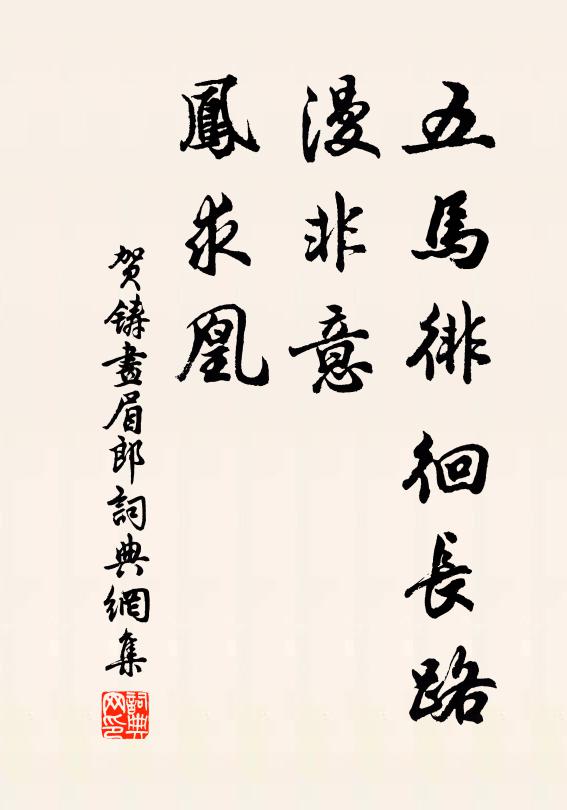 五馬徘徊長路
漫非意
鳳求凰
贺鑄畫眉郎詞典網集
詞典网印